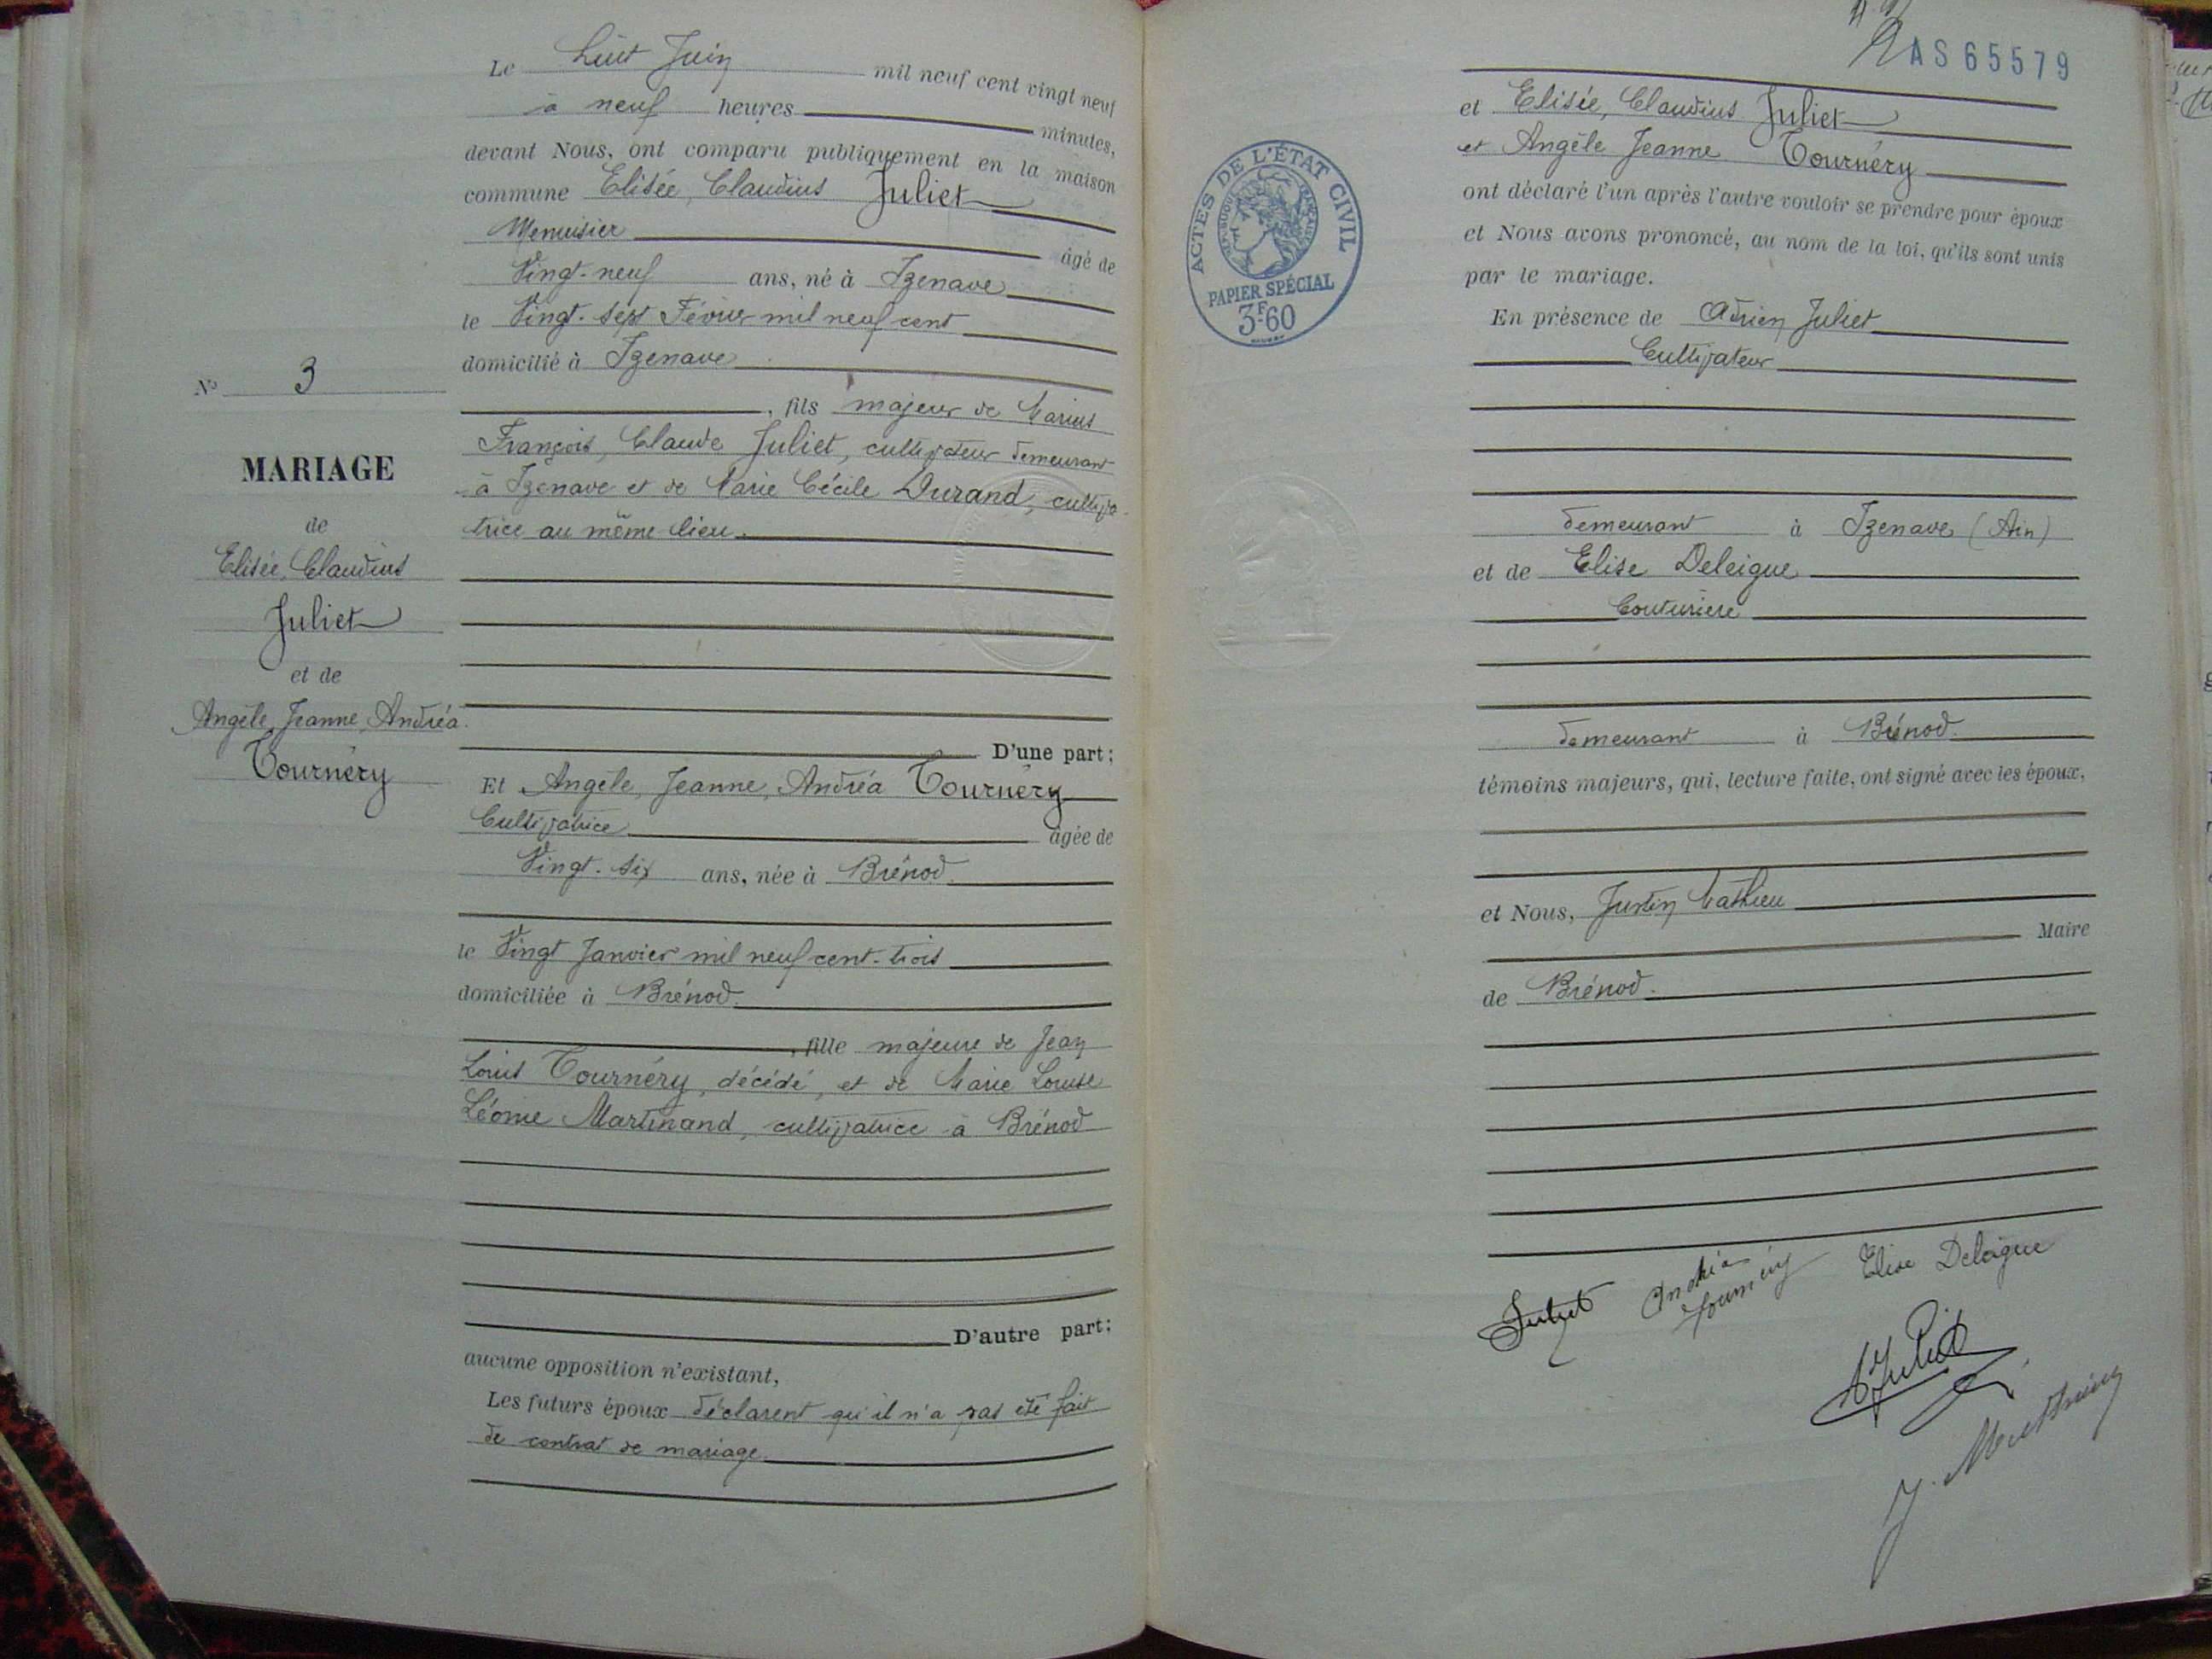 N° 3
MARIAGE
de
Elisée, Claudius
Juliet
et de
Angèle, Jeanne, Andréa
Tournéry
Le huit Juin mil neuf cent vingt neuf
à neuf heures minutes,
devant Nous, ont comparu publiquement en la maison
commune Elisée, Claudius Juliet
Menuisier âgé de
Vingt-neuf ans, né à Izenave
le Vingt-sept Février mil neuf cent
domicilié à Izenave
, fils majeur de Marius
François, Claude Juliet, cultivateur demeurant
à Izenave et de Marie Cécile Durand, cultiva-
trice au même lieu.
D'une part;
Et Angèle, Jeanne, Andréa Tournéry
Cultivatrice âgée de
Vingt-six ans, née à Brénod
le Vingt Janvier mil neuf cent-trois
domiciliée à Brénod
, fille majeure de Jean
Louis Tournéry, décédé, et de Marie Louise
Léonie Martinand, cultivatrice à Brénod
D'autre part;
aucune opposition n'existant,
Les futurs époux déclarent qu'il n'a pas été fait
de contrat de mariage
AS65579
ACTES DE L'ÉTAT CIVIL
PAPIER SPÉCIAL
3F60
et Elisée, Claudius Juliet
et Angèle Jeanne Tournéry
ont déclaré l'un après l'autre vouloir se prendre pour époux
et Nous avons prononcé, au nom de la loi, qu'ils sont unis
par le mariage.
En présence de Adrien Juliet
Cultivateur
demeurant à Izenave (Ain)
et de Elise Deleigue
Couturière
demeurant à Brénod
témoins majeurs, qui, lecture faite, ont signé avec les époux,
et Nous, Justin Mathieu
Maire
de Brénod.
Juliet Andréa Elise Deleigue
Tournéry
A Juliet